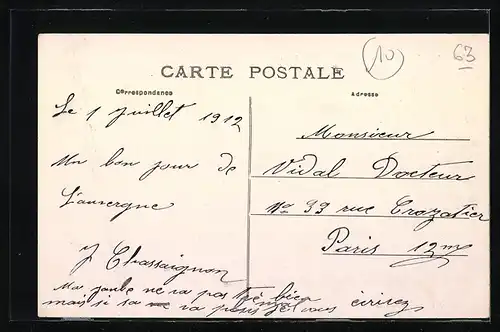 10
63
CARTE POSTALE
Correspondance
Adresse
Le 1 juillet 1912
Un bon jour de
L'auvergne
J Chassaignon
Ma jambe ne va pas très bien
mais si sa ne va je vous écrirez
Monsieur
Vidal Docteur
No 39 rue Crozatier
Paris 12me